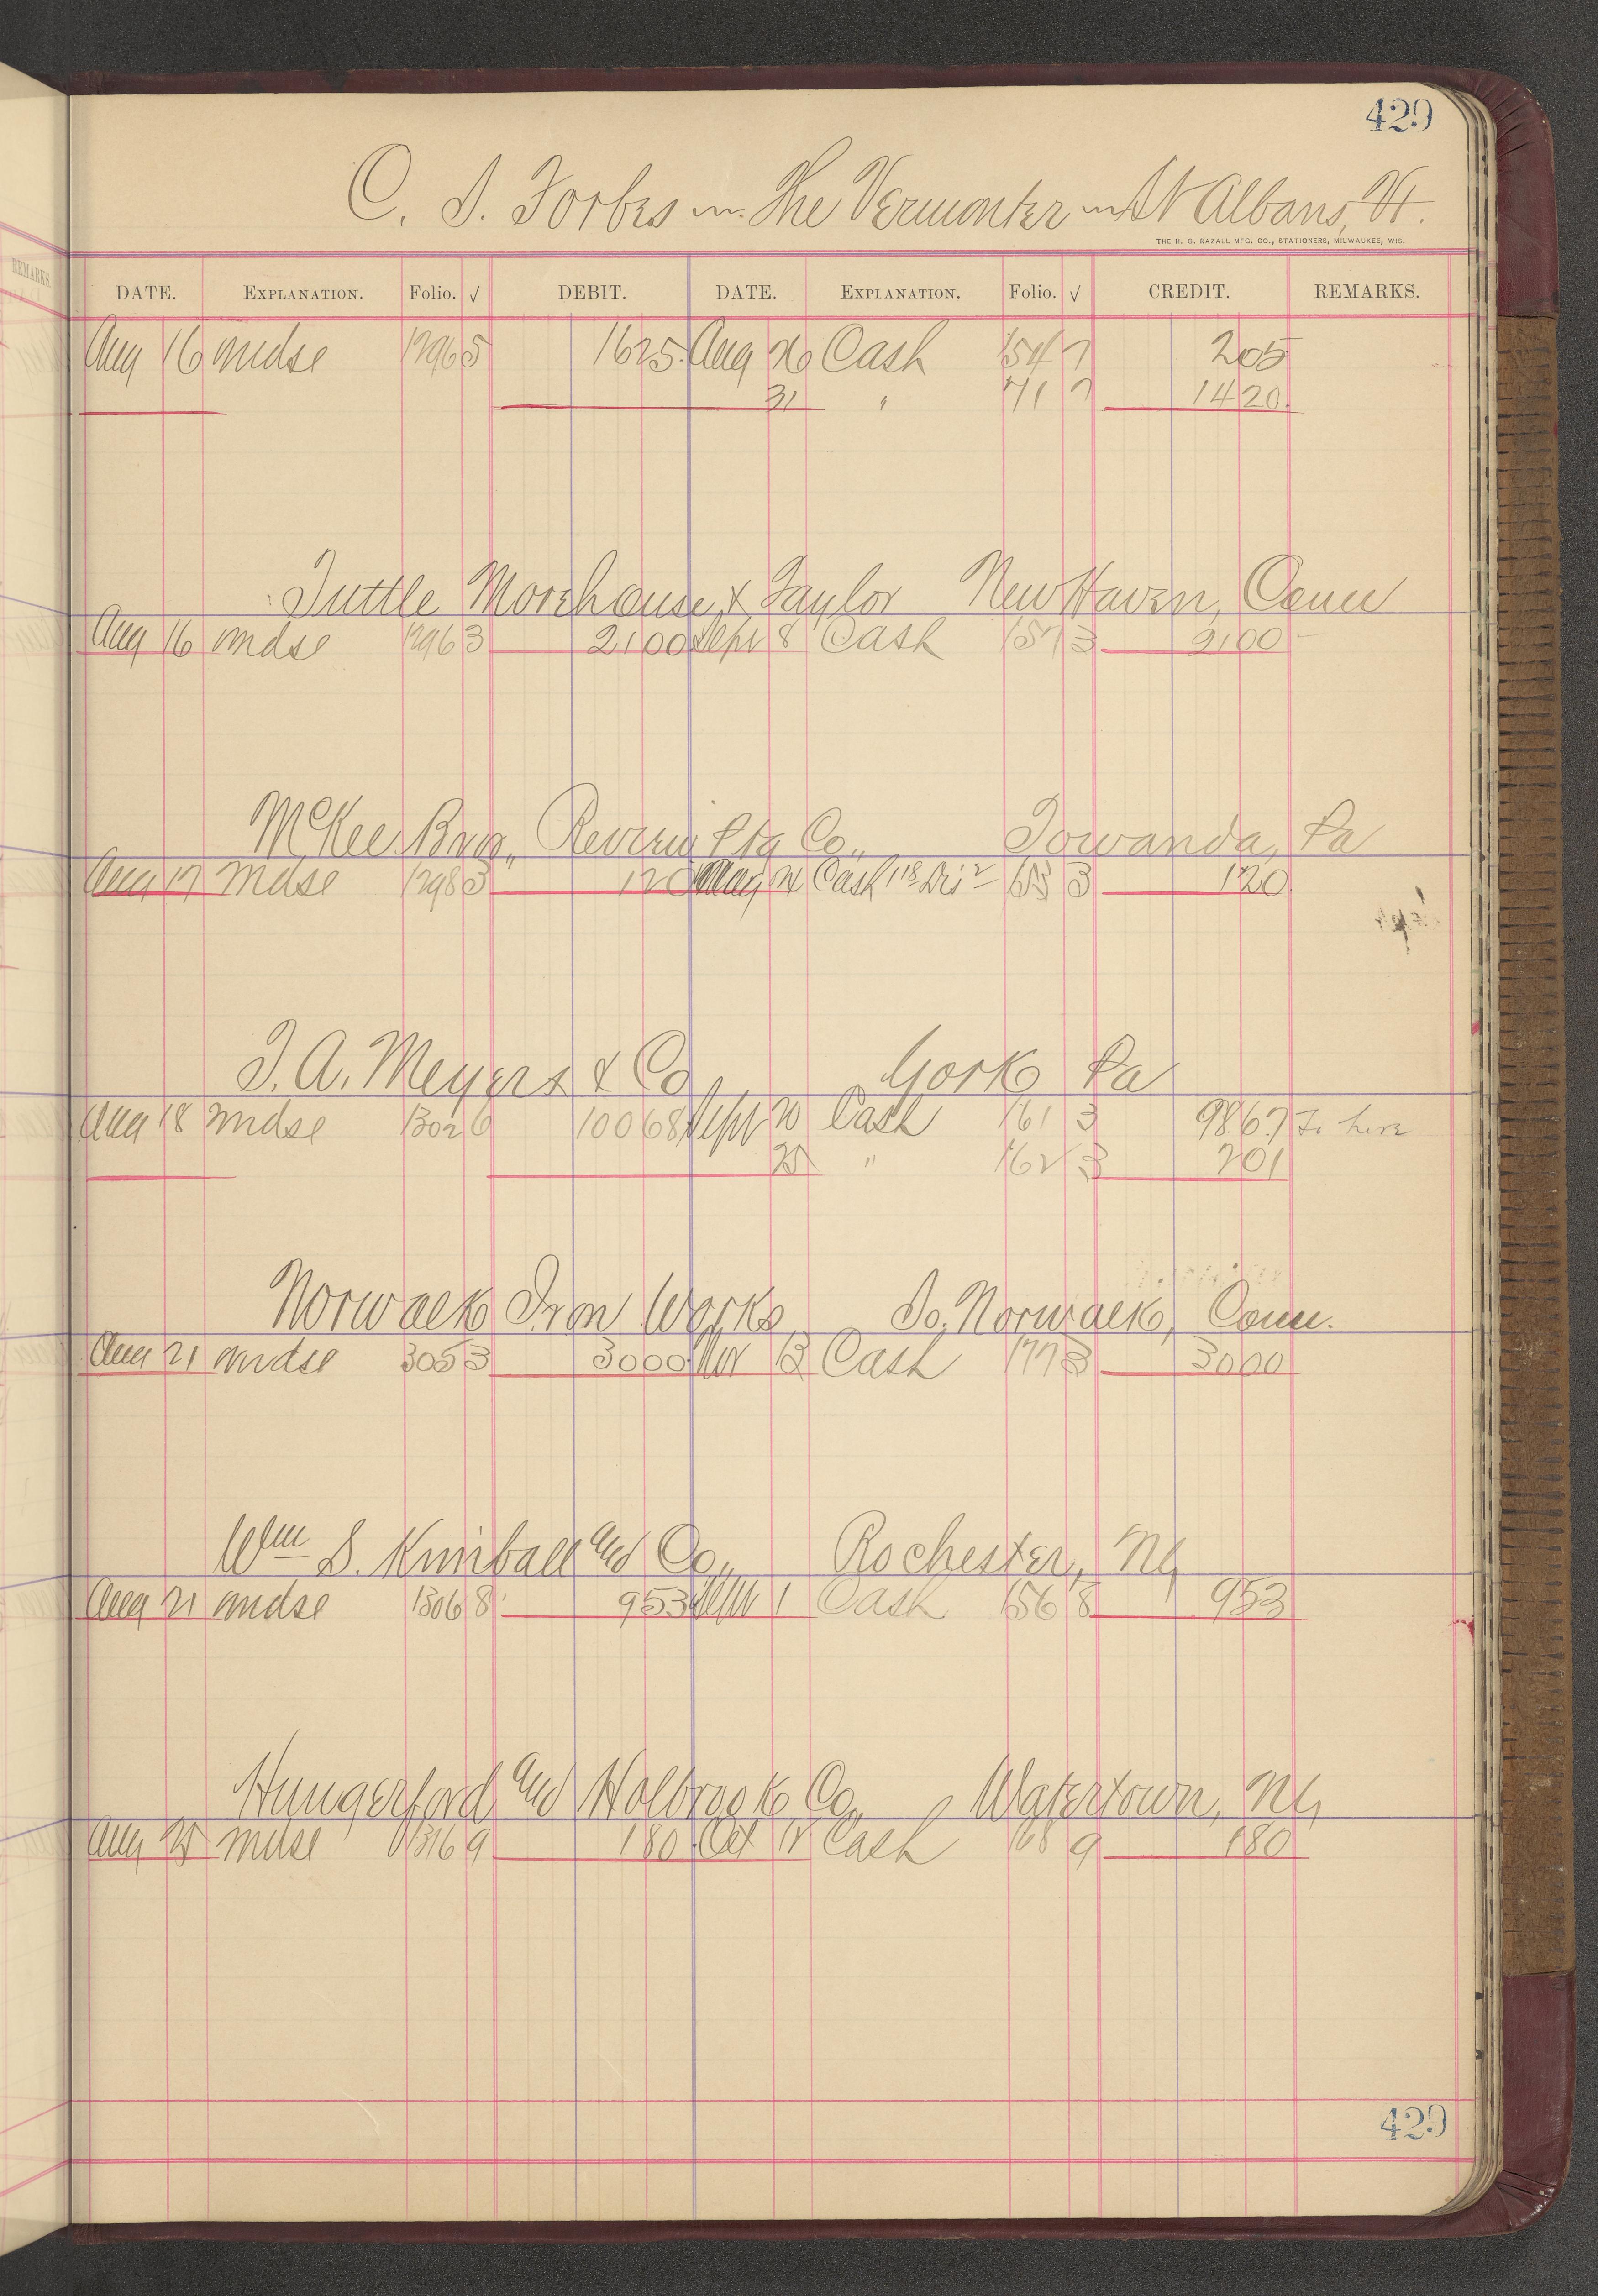 429
C. S. Forbes The Vermonter St Albans, Vt.
THE H. G. RAZALL MFG. CO., STATIONERS, MILWAUKEE, WIS.
REMARKS
DATE. EXPLANATION. Folio. √ DEBIT. DATE. EXPLANATION. Folio. √ CREDIT. REMARKS.
Aug 16 mdse 1296 5 1625 Aug 26 Cash 154 7 205
31 " 711 7 1420
Tuttle Morehouse & Taylor New Haven, Conn
Aug 16 mdse 1296 3 2100 Sept 8 Cash 157 3 2100
McKee Bros, Review Ptg Co., Towanda, Pa
Aug 17 mdse 1298 3 120 Aug 24 Cash 118 Dis 2 153 3 120
T. A. Meyers & Co York Pa
Aug 18 mdse 1302 6 10068 Sept 20 Cash 161 3 9867 To here
25 " 162 3 201
Norwalk Iron Works So. Norwalk, Conn.
Aug 21 mdse 305 3 3000 Nov 13 Cash 177 3 3000
Wm S. Kimball and Co., Rochester, NY
Aug 21 mdse 1306 8 953 Sept 1 Cash 156 8 953
Hungerford and Holbrook Co. Watertown, NY
Aug 25 mdse 1316 9 180 Oct 12 Cash 168 9 180
429